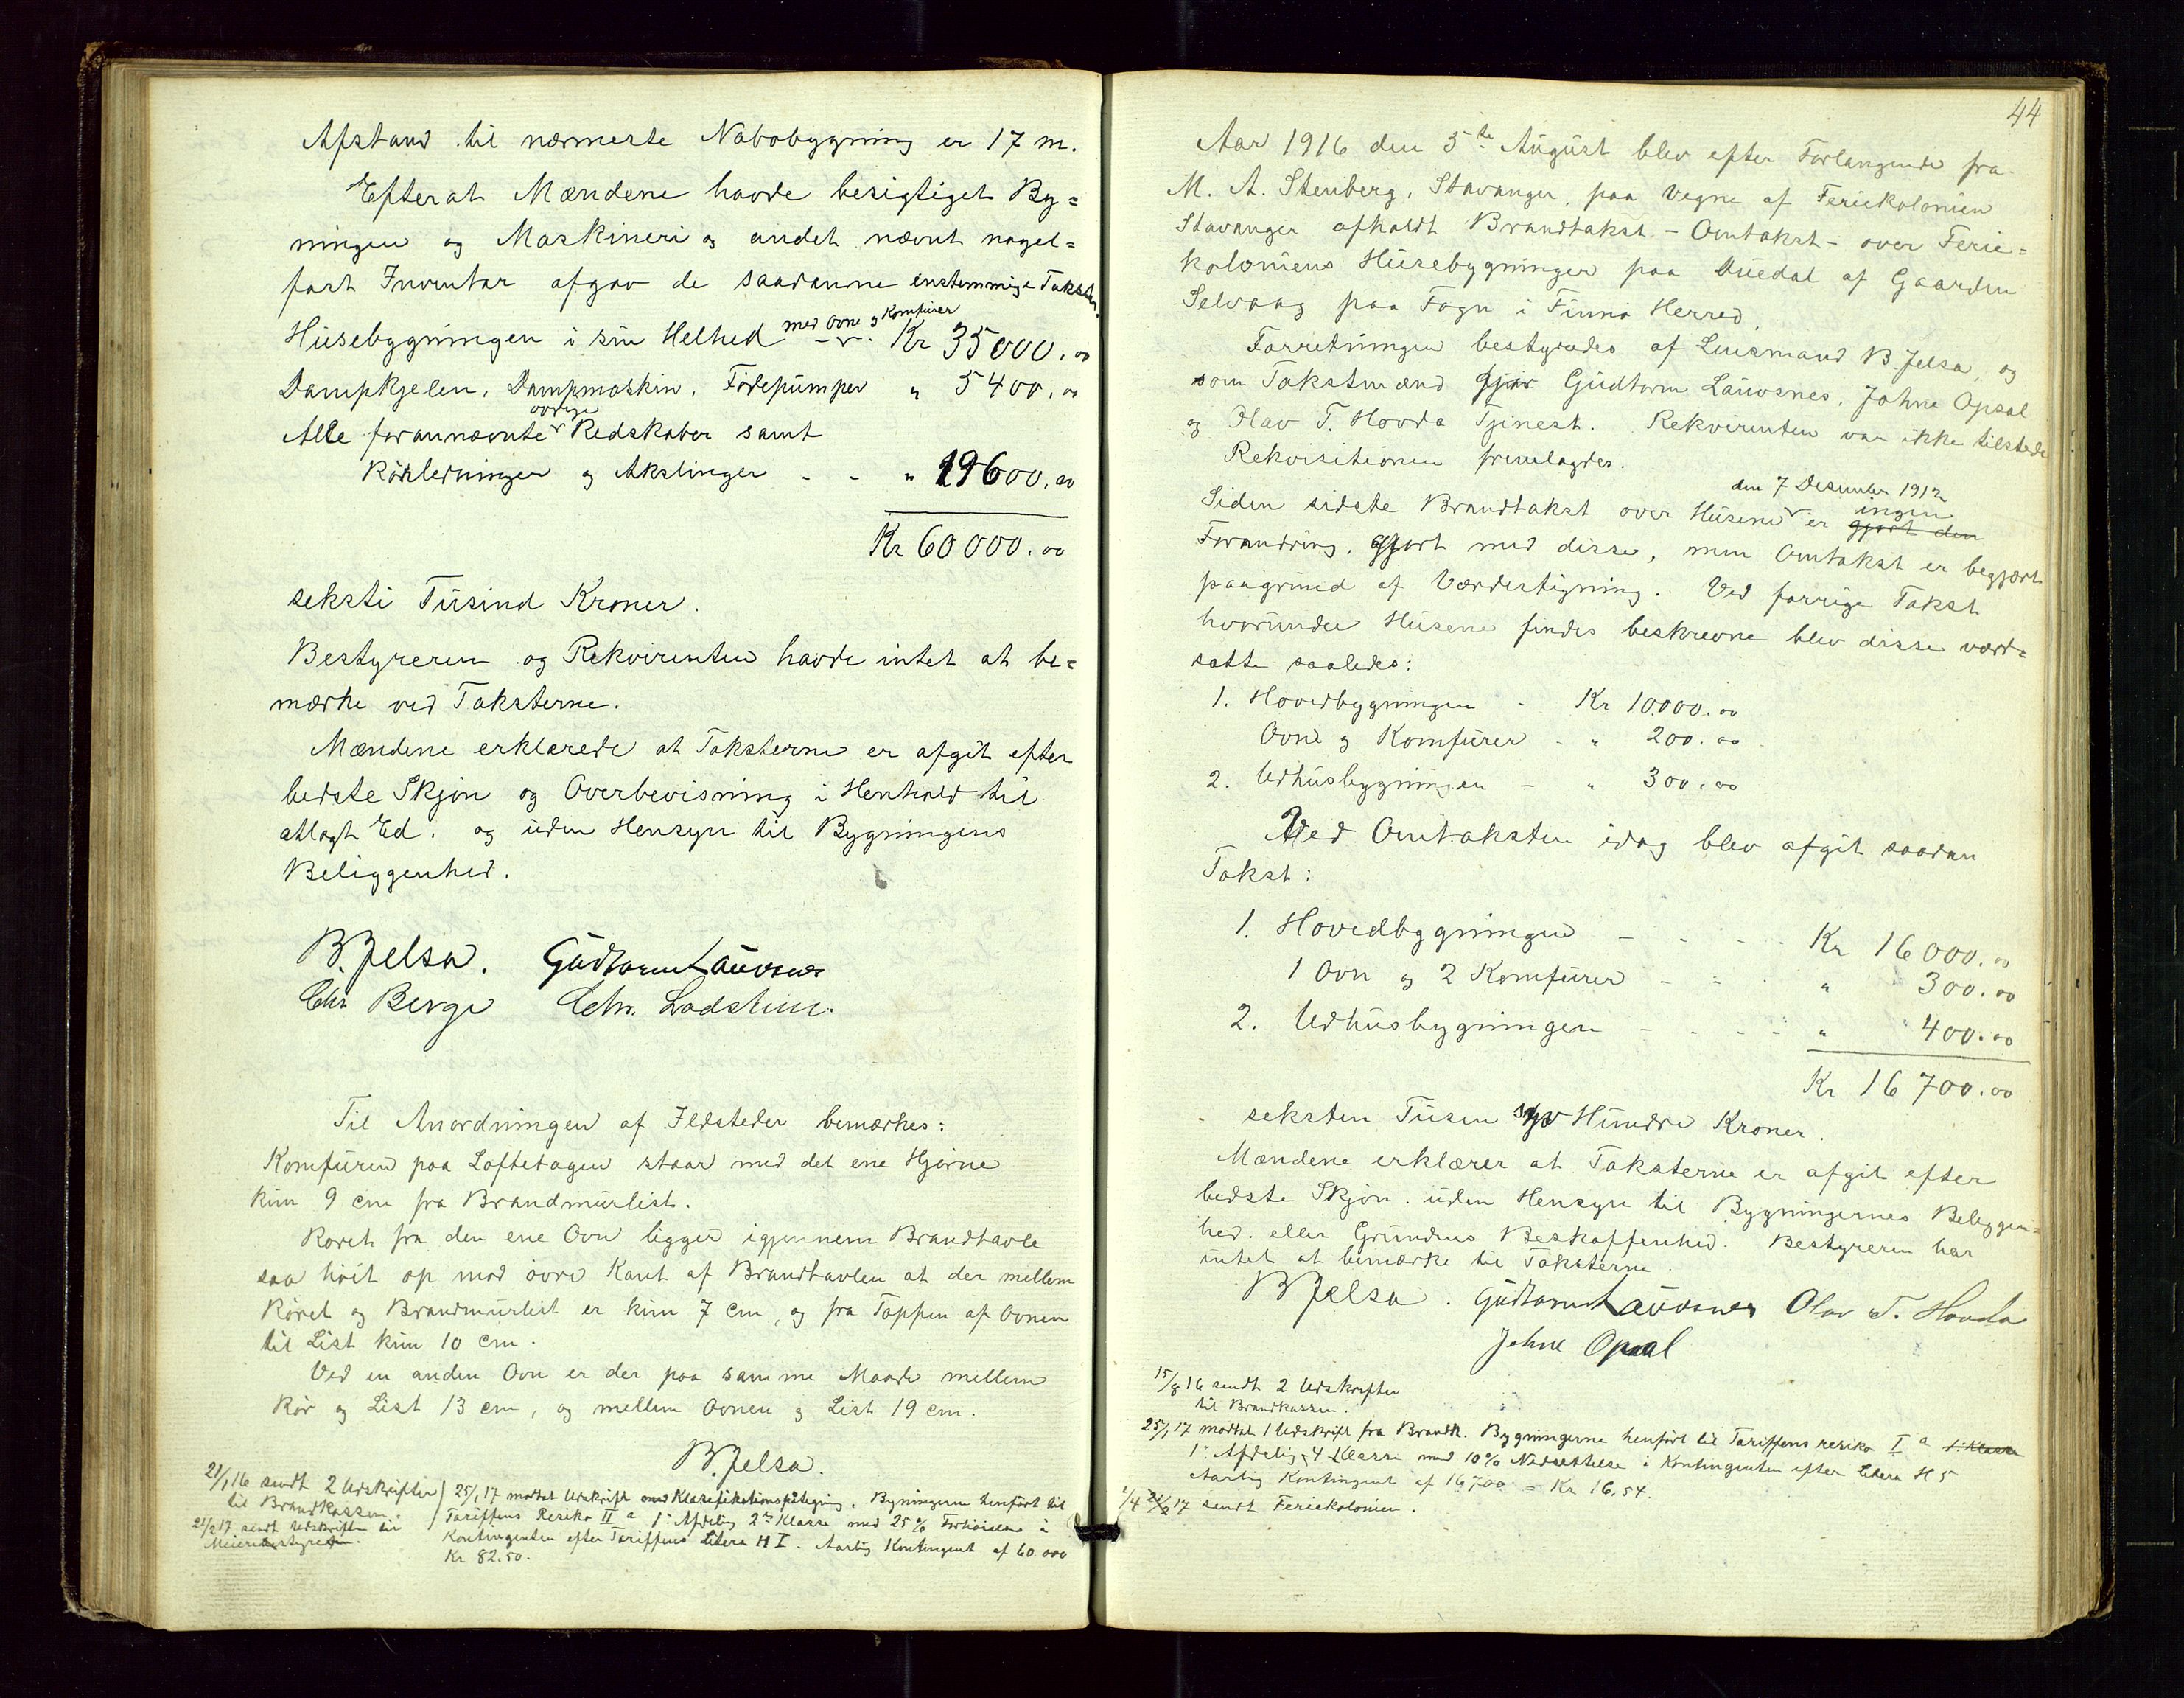 Afstand til nærmeste Nabobygning er 17 m.
Efterat Mændene havde besigtiget By=
ningen og Maskineri og andet nævnt nagel=
fast Inventar afgav de saadanne enstemmige Takster.
Husebygningen i sin Helhed med Ovne og Komfurer Kr 35000.00
Dampkjelen, Dampmaskin, Fødepumper " 5400.00
Alle forannævnte øvrige Redskaber samt
Rørledninger og Akslinger - - " 19600.00
Kr 60000.00
seksti Tusind Kroner.
Bestyreren og Rekvirenten havde intet at be=
mærke ved Taksterne.
Mændene erklærede at Taksterne er afgit efter
bedste Skjøn og Overbevisning i Henhold til
aflagt Ed. og uden Hensyn til Bygningens
Beliggenhed.
B. Jelsa. Gudtorm Lauvsnes
Chr. Berge Chr. Ladstein.
Til Anordningen af Ildsteder bemærkes:
Komfuren paa Loftetagen staar med det ene Hjørne
kun 9 cm fra Brandmurlist.
Røret fra den ene Ovn ligger igjennem Brandtavle
saa høit op mod øvre Kant af Brandtavlen at der mellem
Røret og Brandmurlist er kun 7 cm, og fra Toppen af Ovnen
til List kun 10 cm.
Ved en anden Ovn er der paa samme Maade mellem
Rør og List 13 cm, og mellem Ovnen og List 19 cm.
B. Jelsa.
21/1 16 sendt 2 Udskrifter
til Brandkassen.
21/2 17 sendt Udskriften til
Meieribestyreren.
25/1 17 modtat Udskrift med Klasefikationspåtegning. Bygningerne henført til
Tariffens Resiko II a 1ste Afdeling 2den Klasse med 25% Forhøielse i
Kontingenten efter Tariffens Litera H I. Aarlig Kontingent af 60.000
Kr 82.50.
44
Aar 1916 den 5te August blev efter Forlangende fra
M. A. Stenberg, Stavanger, paa Vegne af Feriekolonien
Stavanger afholdt Brandtakst - Omtakst - over Ferie=
koloniens Husebygninger paa Duedal af Gaarden
Selvaag paa Fogn i Finnø Herred.
Forretningen bestyredes af Lensmand B. Jelsa, og
som Takstmænd gjør Gudtorm Lauvsnes, Johne Opsal
og Olav T. Hovda Tjinest. Rekvirenten var ikke tilstede
Rekvisitionen fremlagdes.
Siden sidste Brandtakst over Husene den 7 Desember 1912 er gjort den ingen
Forandring gjort med disse, men Omtakst er begjært
paagrund af Værdistigning. Ved forrige Takst
hvorunder Husene findes beskrevne blev disse værd=
satte saaledes:
1. Hovedbygningen - Kr 10000.00
Ovne og Komfurer - " 200.00
2. Udhusbygningen - " 300.00
Ved Omtaksten idag blev afgit saadan
Takst:
1. Hovedbygningen - - - - Kr 16000.00
1 Ovn og 2 Komfurer - - - " 300.00
2. Udhusbygningen - - - - " 400.00
Kr 16700.00
seksten Tusen syv Hundre Kroner.
Mændene erklærer at Taksterne er afgit efter
bedste Skjøn uden Hensyn til Bygningernes Beliggen=
hed. eller Grundens Beskaffenhed. Bestyreren har
intet at bemærke til Taksterne.
B Jelsa. Gudtorm Lauvsnes Olav T. Hovda
Johne Opsal
15/8 16 sendt 2 Udskrifter
til Brandkassen.
25/1 17 modtat 1 Udskrift fra Brandk. Bygningerne henført til Tariffens resiko I a 1. Klasse
1ste Afdeling, 4 Klasse med 10% Nedsættelse i Kontingenten efter litera H 5
Aarlig Kontingent af 16700 = Kr 16.54.
1/4 17 sendt Feriekolonien.